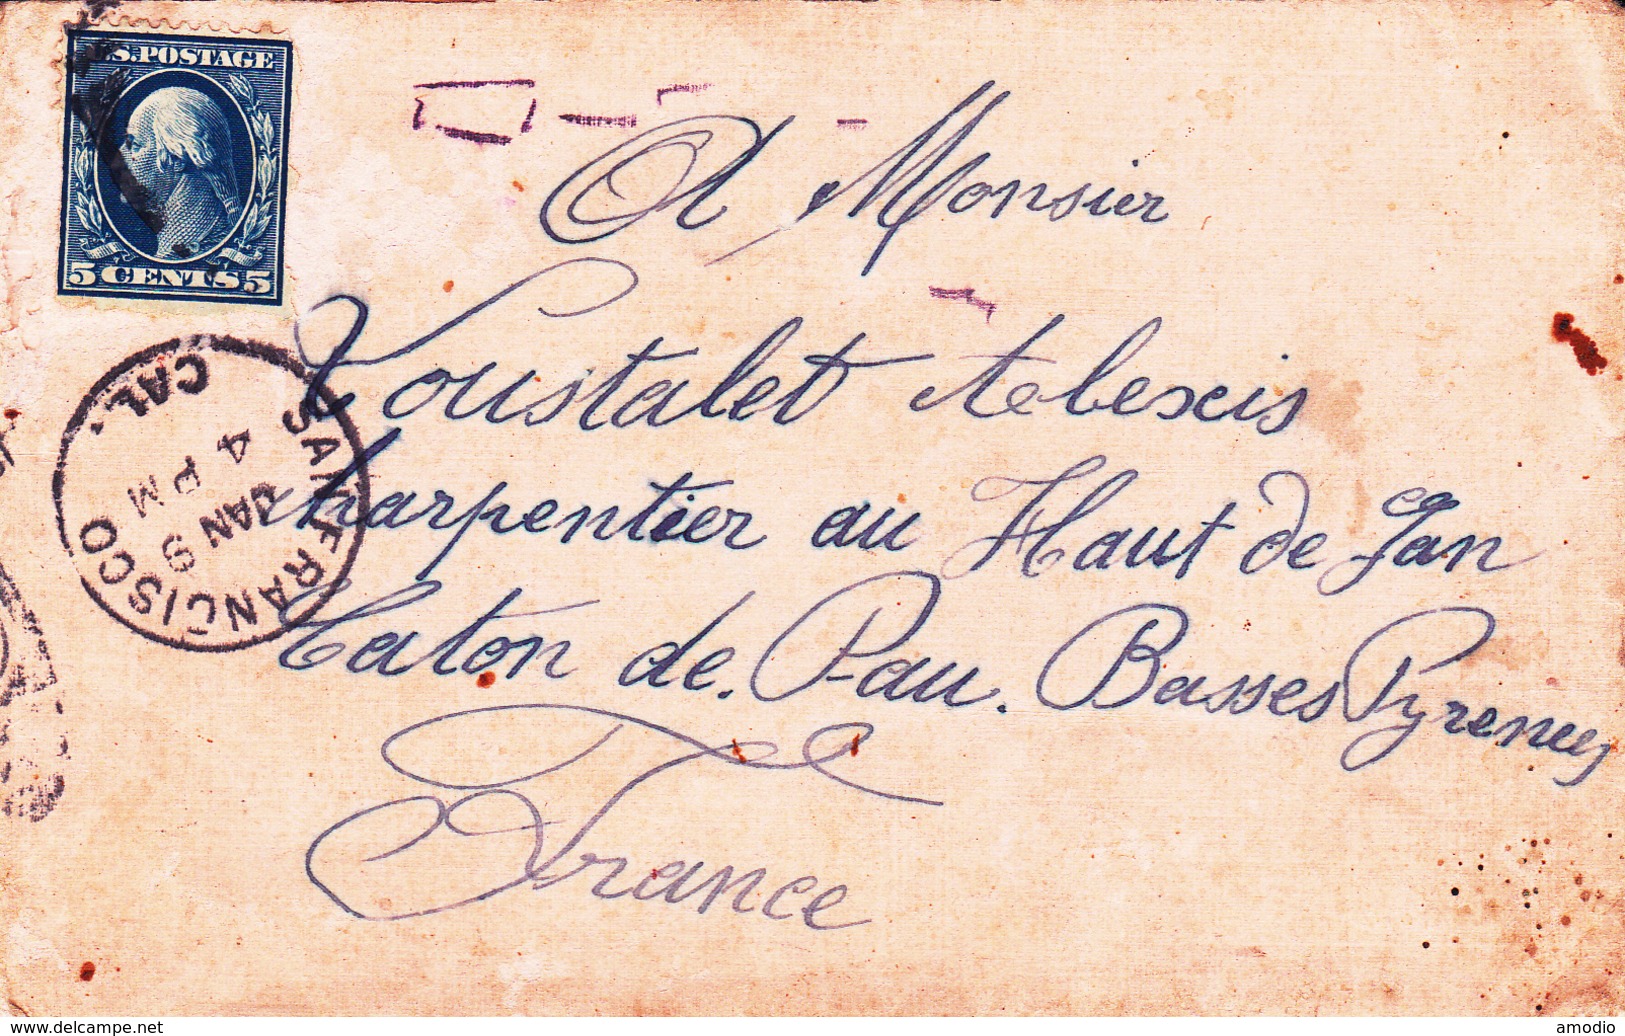 U.S.POSTAGE
5 CENTS 5
SAN FRANCISCO
CAL.
JAN 9
4 PM
A Monsier
Loustalet Alexis
charpentier au Haut de Gan
Caton de. Pau. Basses Pyrenees
France
www.delcampe.net
amodio